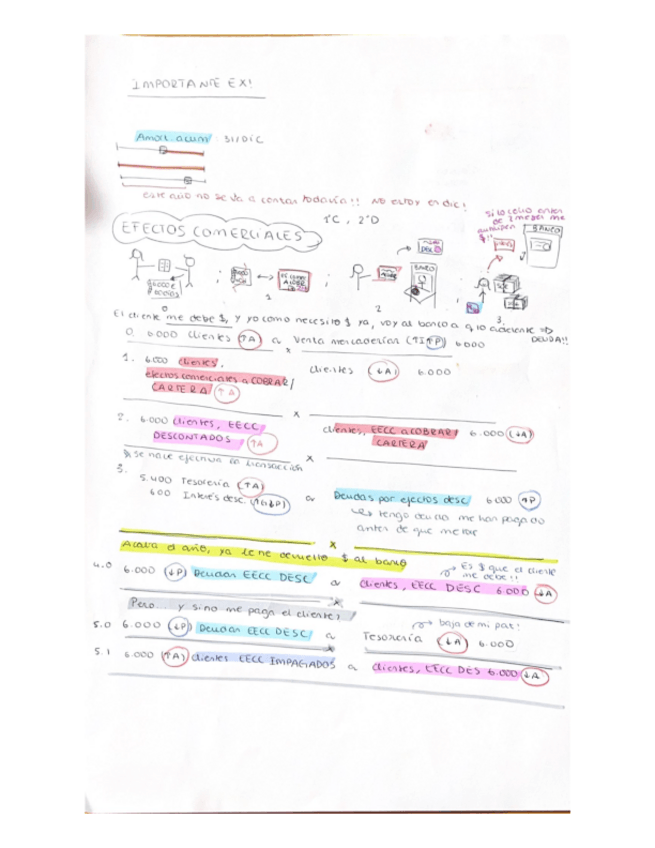 IMPORTANTE EX!
Amort. acum 31/DIC
este año no se va a contar todavía!! NO ESTOY en dic!
1ºC, 2ºD
si lo cobro antes de
$!!
BANCO
EFECTOS COMERCIALES
BANCO
0
1
2
3
El cliente me debe $, y yo como necesito $ ya, voy al banco a q lo adelante => DEUDA!!
0. 6.000 clientes (↑A) a Venta mercaderías (↑I↑P) 6000
x
1. 6.000 clientes, efectos comerciales a COBRAR/ CARTERA (↑A)
clientes (↓A) 6.000
x
2. 6.000 clientes, EECC DESCONTADOS (↑A)
clientes, EECC a COBRAR/ CARTERA 6.000 (↓A)
x
se hace efectiva la transacción
3.
5.400 Tesorería (↑A)
600 Interés desc. (↑G↓P) a Deudas por efectos desc 6000 ↑P
↳ tengo deuda me han pagado
antes de que
x
Acaba el año, ya le he devuelto $ al banco
4.0 6.000 (↓P) Deudas EECC DESC a clientes, EECC DESC 6.000 (↓A)
Es $ que el cliente me debe!!
x
Pero... y si no me paga el cliente?
5.0 6.000 (↓P) Deudas EECC DESC a Tesorería (↓A) 6.000
baja de mi pat!
x
5.1 6.000 (↑A) clientes EECC IMPAGADOS a clientes, EECC DES 6.000 (↓A)